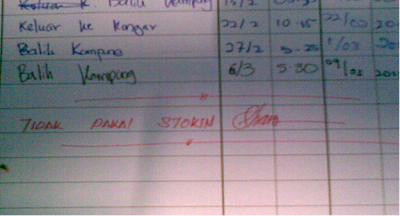 Keluar k. Balik Kampung 15/2
Keluar ke Kangar 22/2 10.45 22/02 20
Balik Kampung 27/2 5.20 1/03 20
Balik Kampung 6/3 5.30 09/03 20
TIDAK PAKAI STOKIN